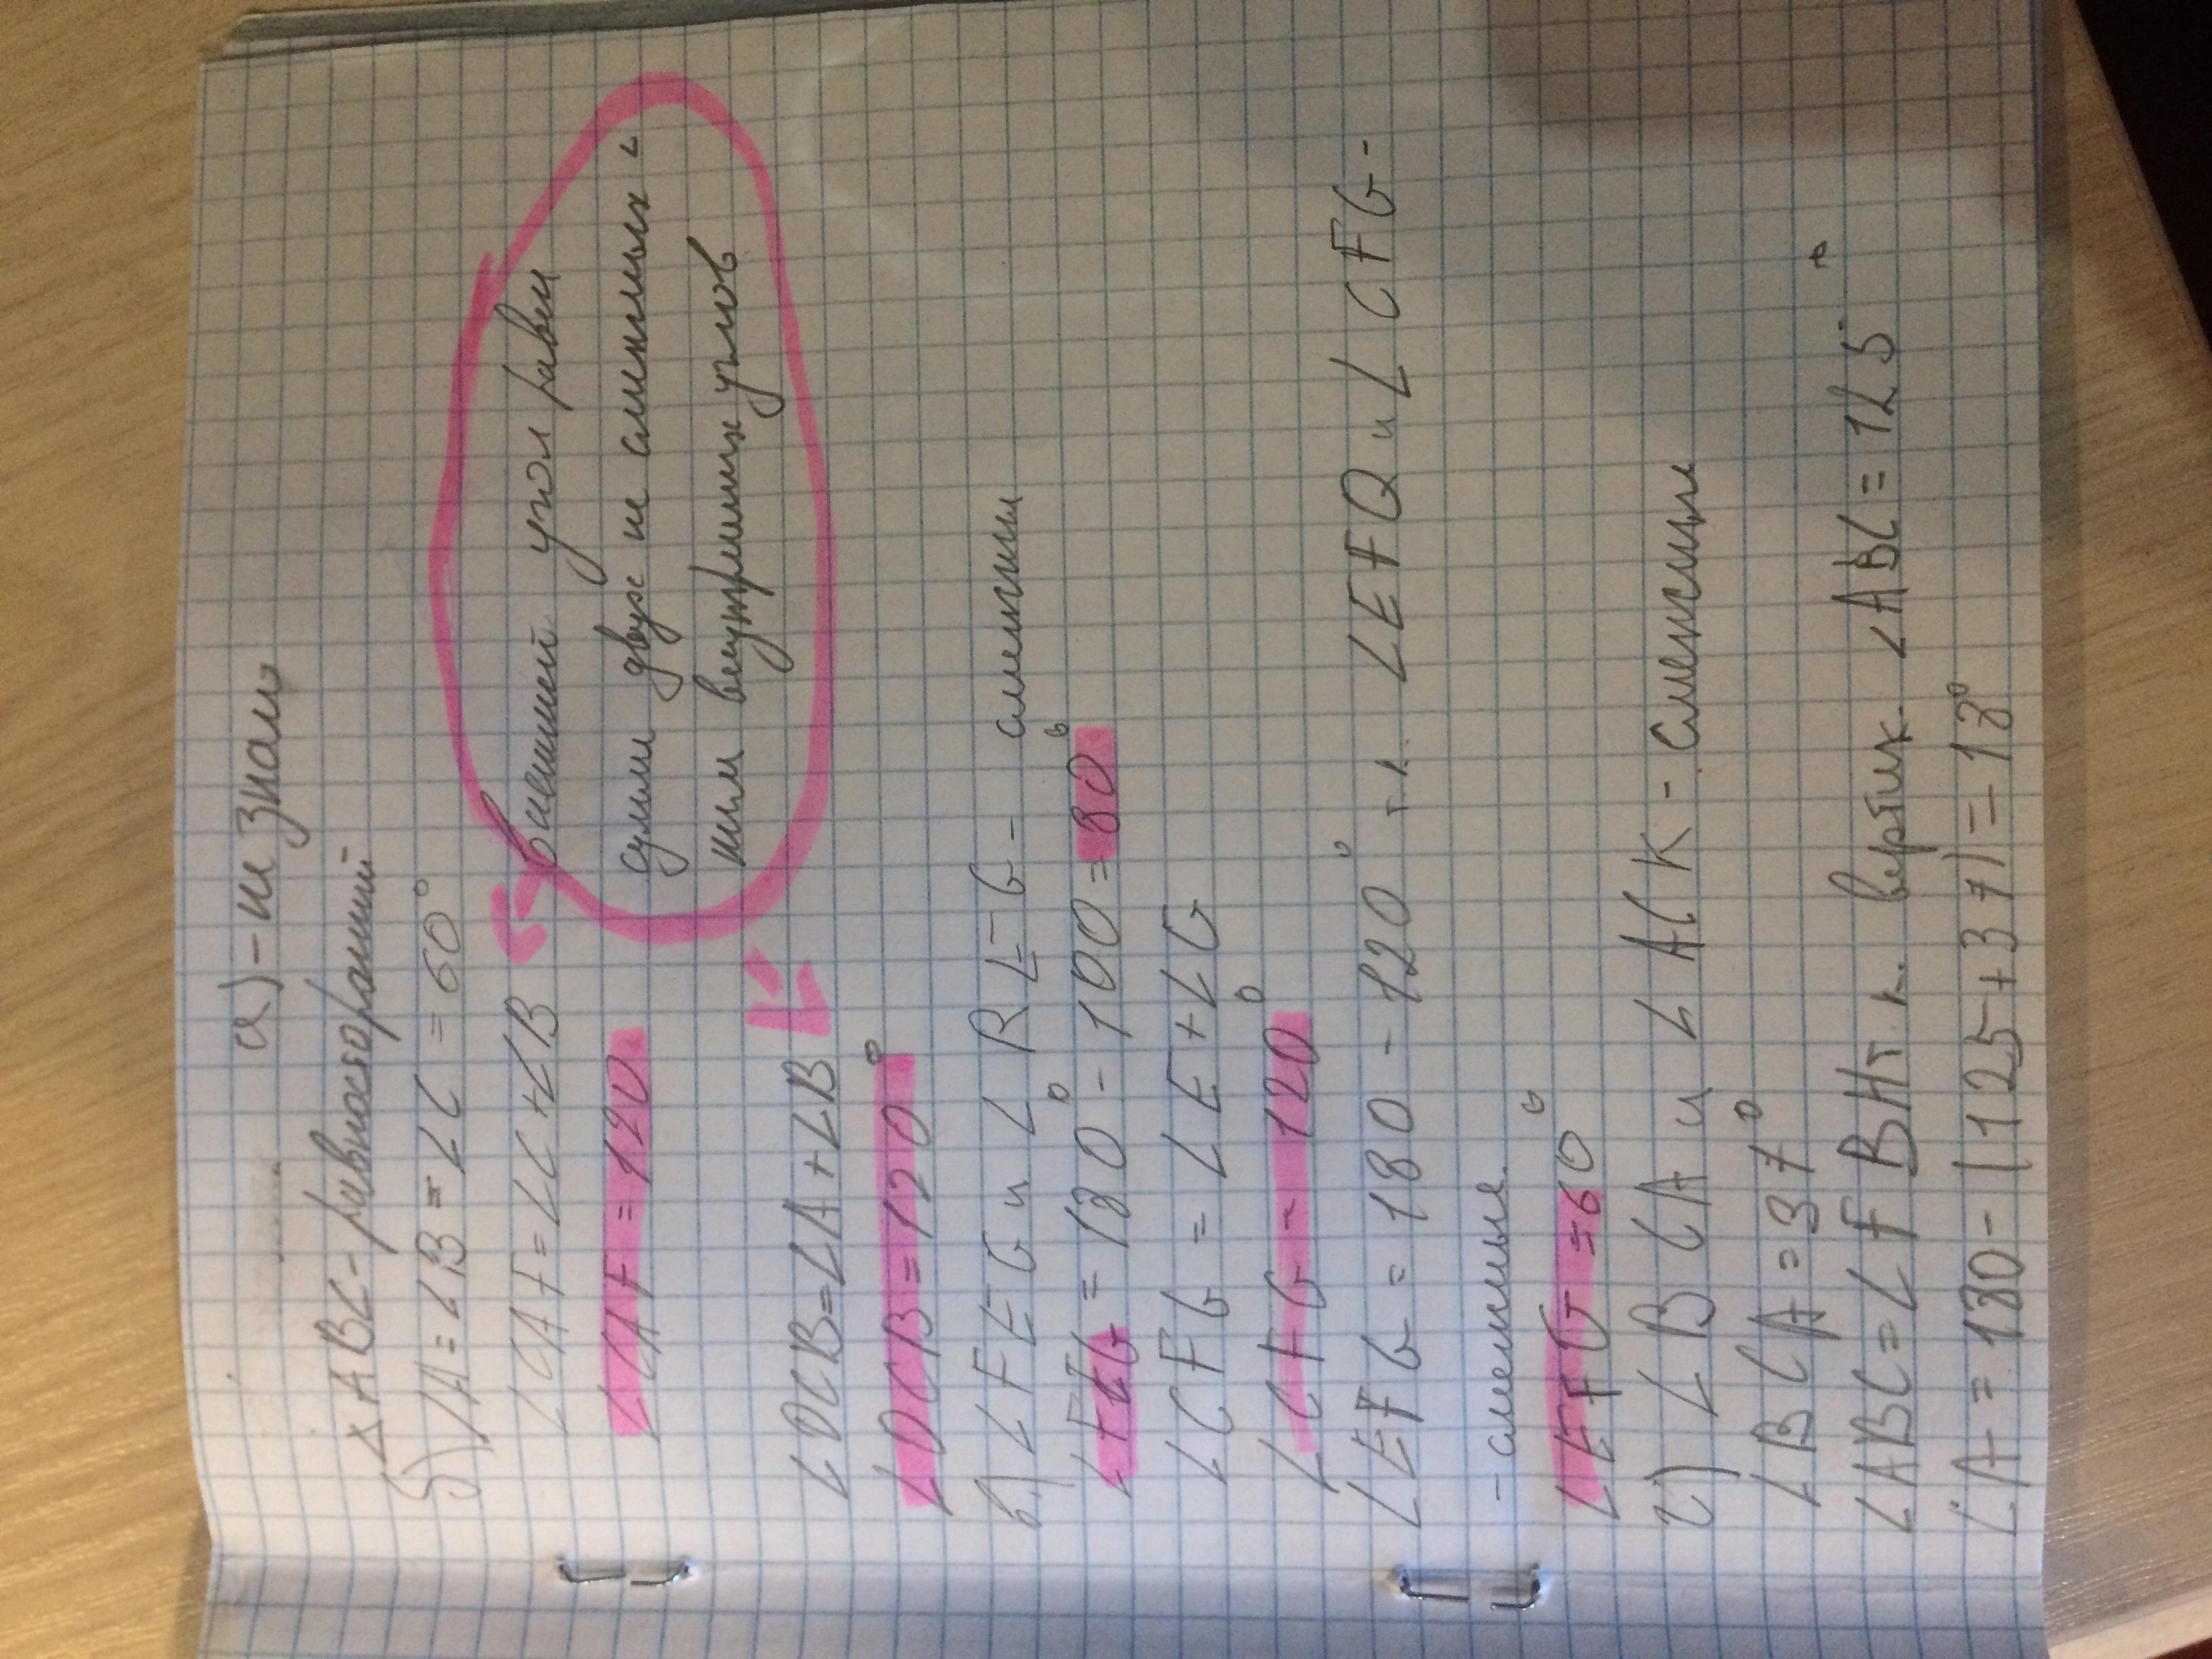 а) - не знаю
△ABC - равносторонний
б) ∠A = ∠B = ∠C = 60°
∠CAF = ∠C + ∠B
∠CAF = 120
Внешний угол равен
сумме двух не смежных с
ним внутренних углов
∠DCB = ∠A + ∠B
∠DCB = 120°
в.) ∠FEG и ∠REG - смежны
∠FEG = 180° - 100 = 80°
∠CFG = ∠E + ∠G
∠CFG - 120°
∠EFG = 180 - 120° т.к. ∠EFQ и ∠CFG -
- смежные.
∠EFG = 60°
г) ∠BCA и ∠ACK - смежные
∠BCA = 37°
∠ABC = ∠FBH т.к. вертик. ∠ABC = 125°
∠A = 180 - (125 + 37) = 18°